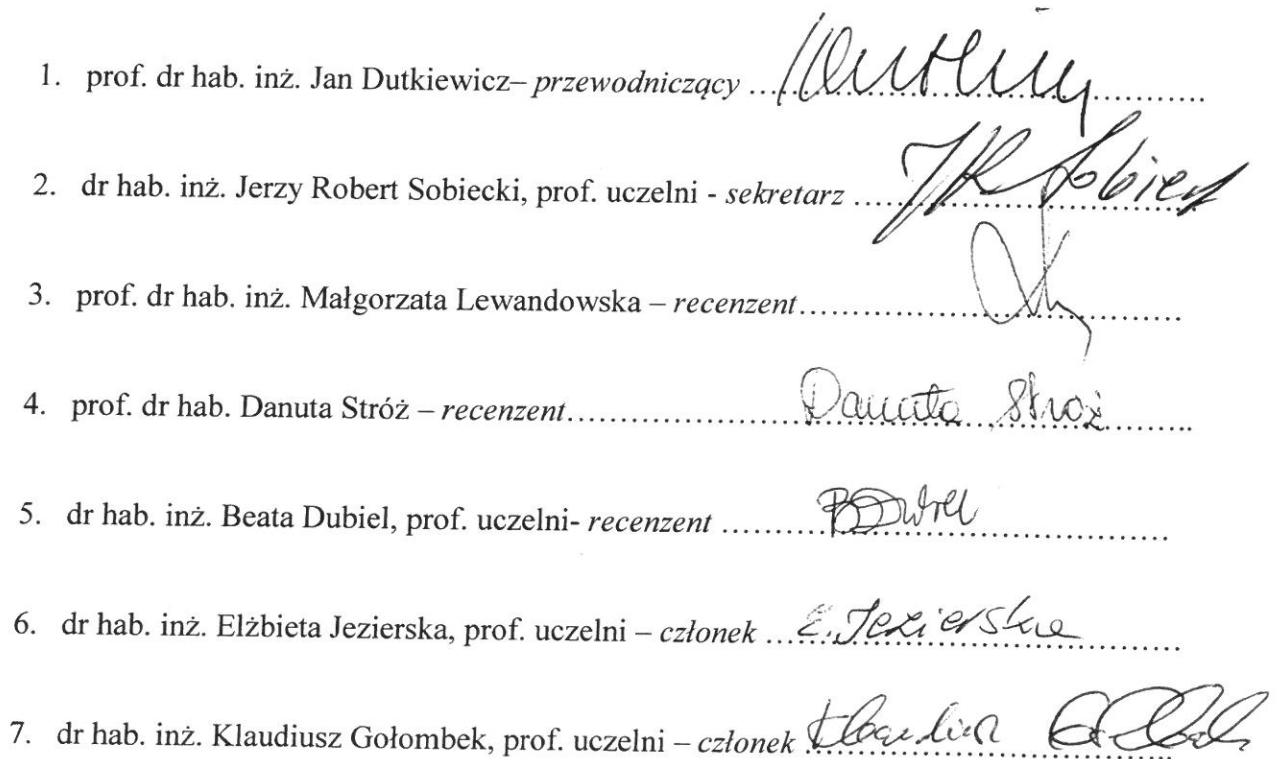 1. prof. dr hab. inż. Jan Dutkiewicz– przewodniczący ....................
2. dr hab. inż. Jerzy Robert Sobiecki, prof. uczelni - sekretarz .................... JR Sobieck
3. prof. dr hab. inż. Małgorzata Lewandowska – recenzent....................
4. prof. dr hab. Danuta Stróż – recenzent.................... Danuta Stróż
5. dr hab. inż. Beata Dubiel, prof. uczelni- recenzent ....................
6. dr hab. inż. Elżbieta Jezierska, prof. uczelni – członek .................... E. Jezierska
7. dr hab. inż. Klaudiusz Gołombek, prof. uczelni – członek ....................